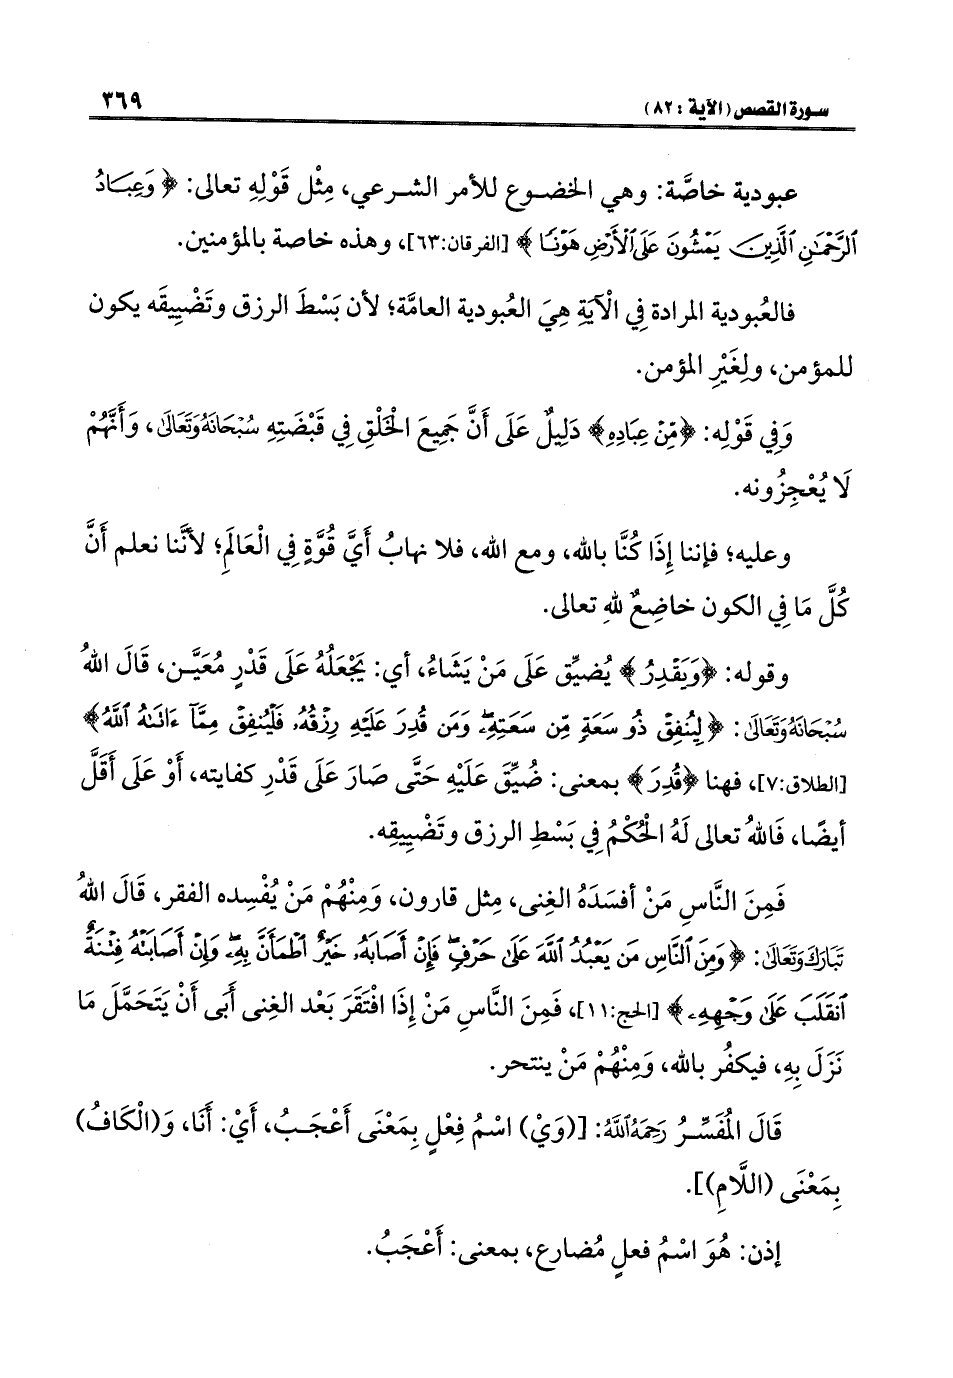 سورة القصص (الآية: ٨٢)
٣٦٩
عبودية خاصَّة: وهي الخضوع للأمر الشرعي، مِثْل قَوْلِهِ تعالى: ﴿وَعِبَادُ
ٱلرَّحْمَٰنِ ٱلَّذِينَ يَمْشُونَ عَلَى ٱلْأَرْضِ هَوْنًا﴾ [الفرقان:٦٣]، وهذه خاصة بالمؤمنين.
فالعُبودية المرادة فِي الْآيَةِ هِيَ العُبودية العامَّة؛ لأن بَسْطَ الرزق وتَضْيِيقَه يكون
للمؤمن، ولِغَيْرِ المؤمن.
وَفِي قَوْلِه: ﴿مِنْ عِبَادِهِ﴾ دَلِيلٌ عَلَى أَنَّ جَمِيعَ الْخَلْقِ فِي قَبْضَتِهِ سُبْحَانَهُ وَتَعَالَى، وَأَنَّهُمْ
لَا يُعْجِزُونه.
وعليه؛ فإننا إِذَا كُنَّا بالله، ومع الله، فلا نهابُ أَيَّ قُوَّةٍ فِي الْعَالَمِ؛ لأنَّنا نعلم أَنَّ
كُلَّ مَا فِي الكون خاضِعٌ للهِ تعالى.
وقوله: ﴿وَيَقْدِرُ﴾ يُضيِّق عَلَى مَنْ يَشَاءُ، أي: يَجْعَلُهُ عَلَى قَدْرٍ مُعَيَّن، قَالَ اللهُ
سُبْحَانَهُ وَتَعَالَى: ﴿لِيُنفِقْ ذُو سَعَةٍ مِّن سَعَتِهِۦ وَمَن قُدِرَ عَلَيْهِ رِزْقُهُۥ فَلْيُنفِقْ مِمَّآ ءَاتَىٰهُ ٱللَّهُ﴾
[الطلاق:٧]، فهنا ﴿قُدِرَ﴾ بمعنى: ضُيِّقَ عَلَيْهِ حَتَّى صَارَ عَلَى قَدْرِ كفايته، أَوْ عَلَى أَقَلَّ
أيضًا، فَاللهُ تعالى لَهُ الْحُكْمُ فِي بَسْطِ الرزق وتَضْيِيقِه.
فَمِنَ النَّاسِ مَنْ أفسَدَهُ الغِنى، مِثل قارون، وَمِنْهُمْ مَنْ يُفْسِده الفقر، قَالَ اللهُ
تَبَارَكَ وَتَعَالَى: ﴿وَمِنَ ٱلنَّاسِ مَن يَعْبُدُ ٱللَّهَ عَلَىٰ حَرْفٍ فَإِنْ أَصَابَهُۥ خَيْرٌ ٱطْمَأَنَّ بِهِۦ وَإِنْ أَصَابَتْهُ فِتْنَةٌ
ٱنقَلَبَ عَلَىٰ وَجْهِهِۦ﴾ [الحج:١١]، فَمِنَ النَّاسِ مَنْ إِذَا افْتَقَرَ بَعْد الغِنى أَبَى أَنْ يَتَحَمَّلَ مَا
نَزَلَ بِهِ، فيكفُر بالله، وَمِنْهُمْ مَنْ ينتحر.
قَالَ الْمُفَسِّرُ رَحِمَهُ اللَّهُ: [(وَيْ) اسْمُ فِعْلٍ بِمَعْنَى أَعْجَبُ، أَيْ: أَنَا، وَ(الْكَافُ)
بِمَعْنَى (اللَّامِ)].
إذن: هُوَ اسْمُ فعلٍ مُضارع، بمعنى: أَعْجَبُ.